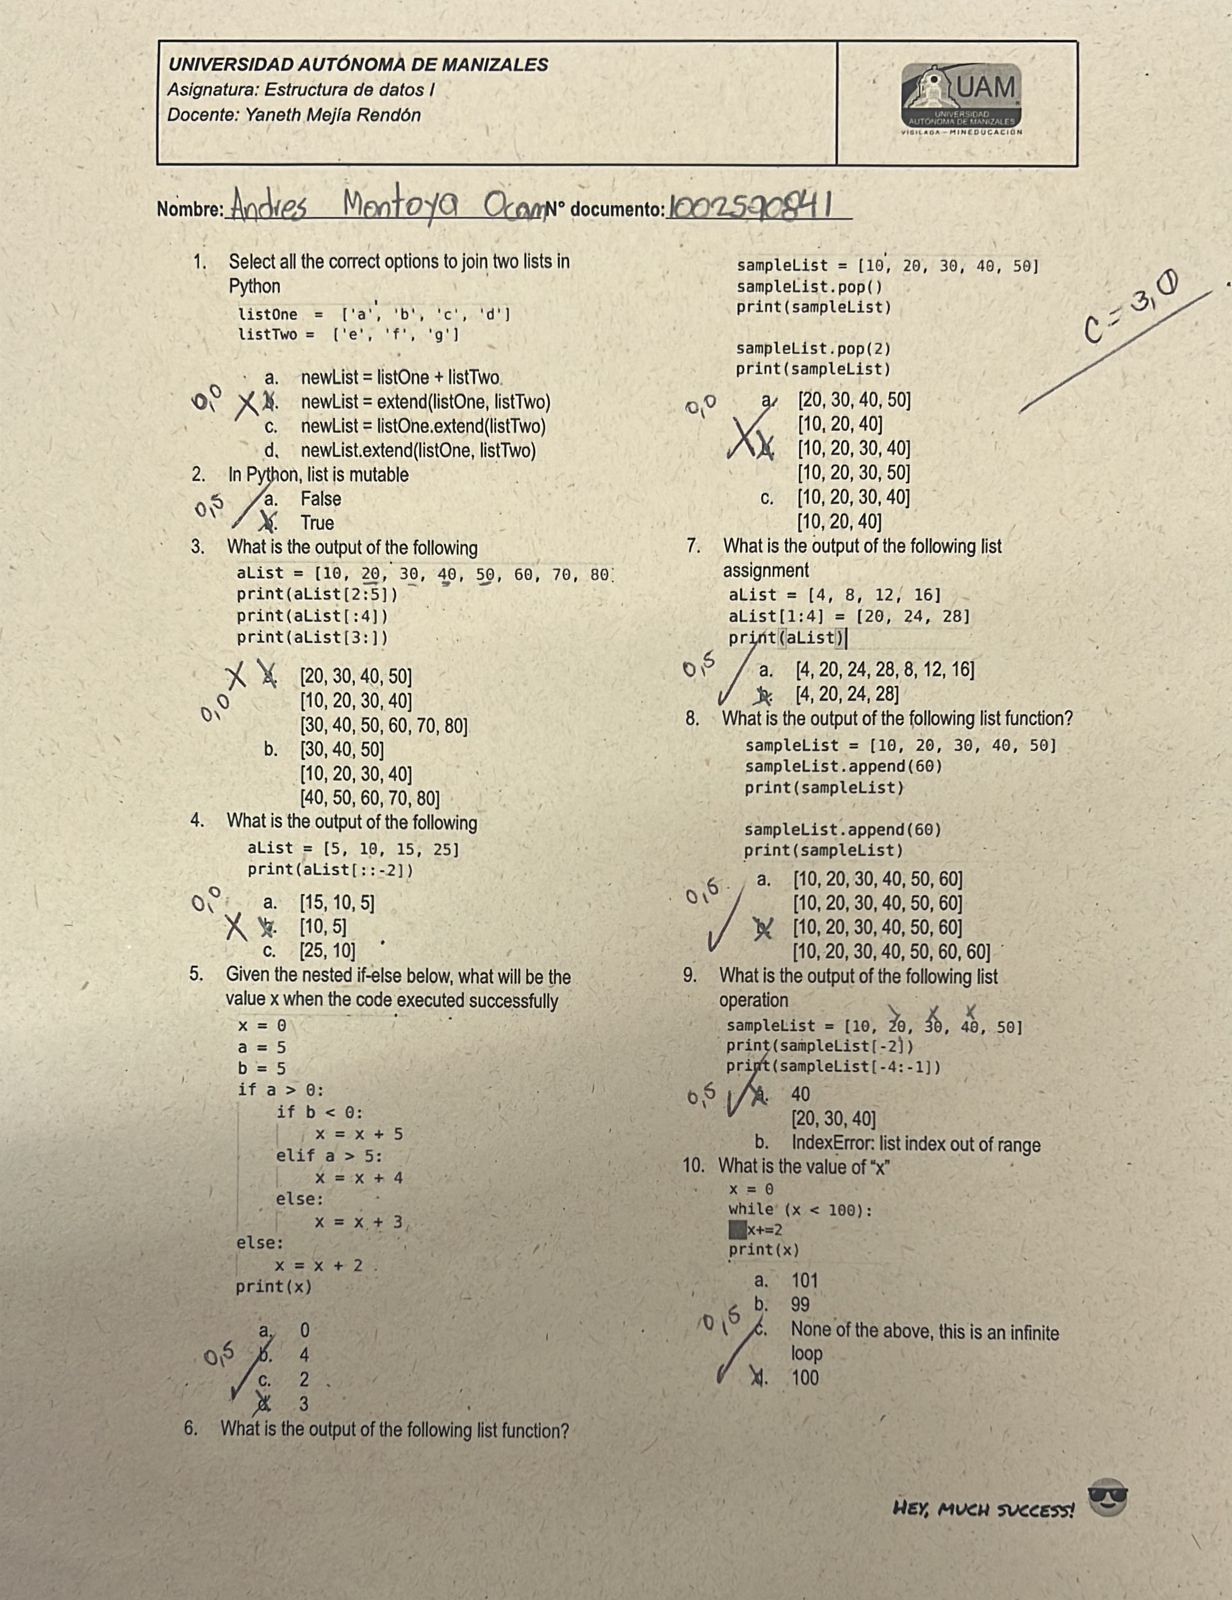 UNIVERSIDAD AUTÓNOMA DE MANIZALES
Asignatura: Estructura de datos I
Docente: Yaneth Mejía Rendón
UAM
UNIVERSIDAD
AUTÓNOMA DE MANIZALES
VIGILADA - MINEDUCACIÓN
Nombre: Andres Montoya Ocam N° documento: 1002590841
1. Select all the correct options to join two lists in
Python
listOne = ['a', 'b', 'c', 'd']
listTwo = ['e', 'f', 'g']
a. newList = listOne + listTwo
0,0 X b. newList = extend(listOne, listTwo)
c. newList = listOne.extend(listTwo)
d. newList.extend(listOne, listTwo)
2. In Python, list is mutable
0,5 a. False
b. True
3. What is the output of the following
aList = [10, 20, 30, 40, 50, 60, 70, 80]
print(aList[2:5])
print(aList[:4])
print(aList[3:])
X a. [20, 30, 40, 50]
0,0 [10, 20, 30, 40]
[30, 40, 50, 60, 70, 80]
b. [30, 40, 50]
[10, 20, 30, 40]
[40, 50, 60, 70, 80]
4. What is the output of the following
aList = [5, 10, 15, 25]
print(aList[::-2])
0,0 a. [15, 10, 5]
X b. [10, 5]
c. [25, 10]
5. Given the nested if-else below, what will be the
value x when the code executed successfully
x = 0
a = 5
b = 5
if a > 0:
if b < 0:
x = x + 5
elif a > 5:
x = x + 4
else:
x = x + 3
else:
x = x + 2
print(x)
a. 0
0,5 b. 4
c. 2
d. 3
6. What is the output of the following list function?
sampleList = [10, 20, 30, 40, 50]
sampleList.pop()
print(sampleList)
C = 3,0
sampleList.pop(2)
print(sampleList)
0,0 a. [20, 30, 40, 50]
[10, 20, 40]
X b. [10, 20, 30, 40]
[10, 20, 30, 50]
c. [10, 20, 30, 40]
[10, 20, 40]
7. What is the output of the following list
assignment
aList = [4, 8, 12, 16]
aList[1:4] = [20, 24, 28]
print(aList)
0,5 a. [4, 20, 24, 28, 8, 12, 16]
b. [4, 20, 24, 28]
8. What is the output of the following list function?
sampleList = [10, 20, 30, 40, 50]
sampleList.append(60)
print(sampleList)
sampleList.append(60)
print(sampleList)
0,5 a. [10, 20, 30, 40, 50, 60]
[10, 20, 30, 40, 50, 60]
b. [10, 20, 30, 40, 50, 60]
[10, 20, 30, 40, 50, 60, 60]
9. What is the output of the following list
operation
sampleList = [10, 20, 30, 40, 50]
print(sampleList[-2])
print(sampleList[-4:-1])
0,5 a. 40
[20, 30, 40]
b. IndexError: list index out of range
10. What is the value of “x”
x = 0
while (x < 100):
x+=2
print(x)
a. 101
b. 99
0,5 c. None of the above, this is an infinite
loop
d. 100
HEY, MUCH SUCCESS!